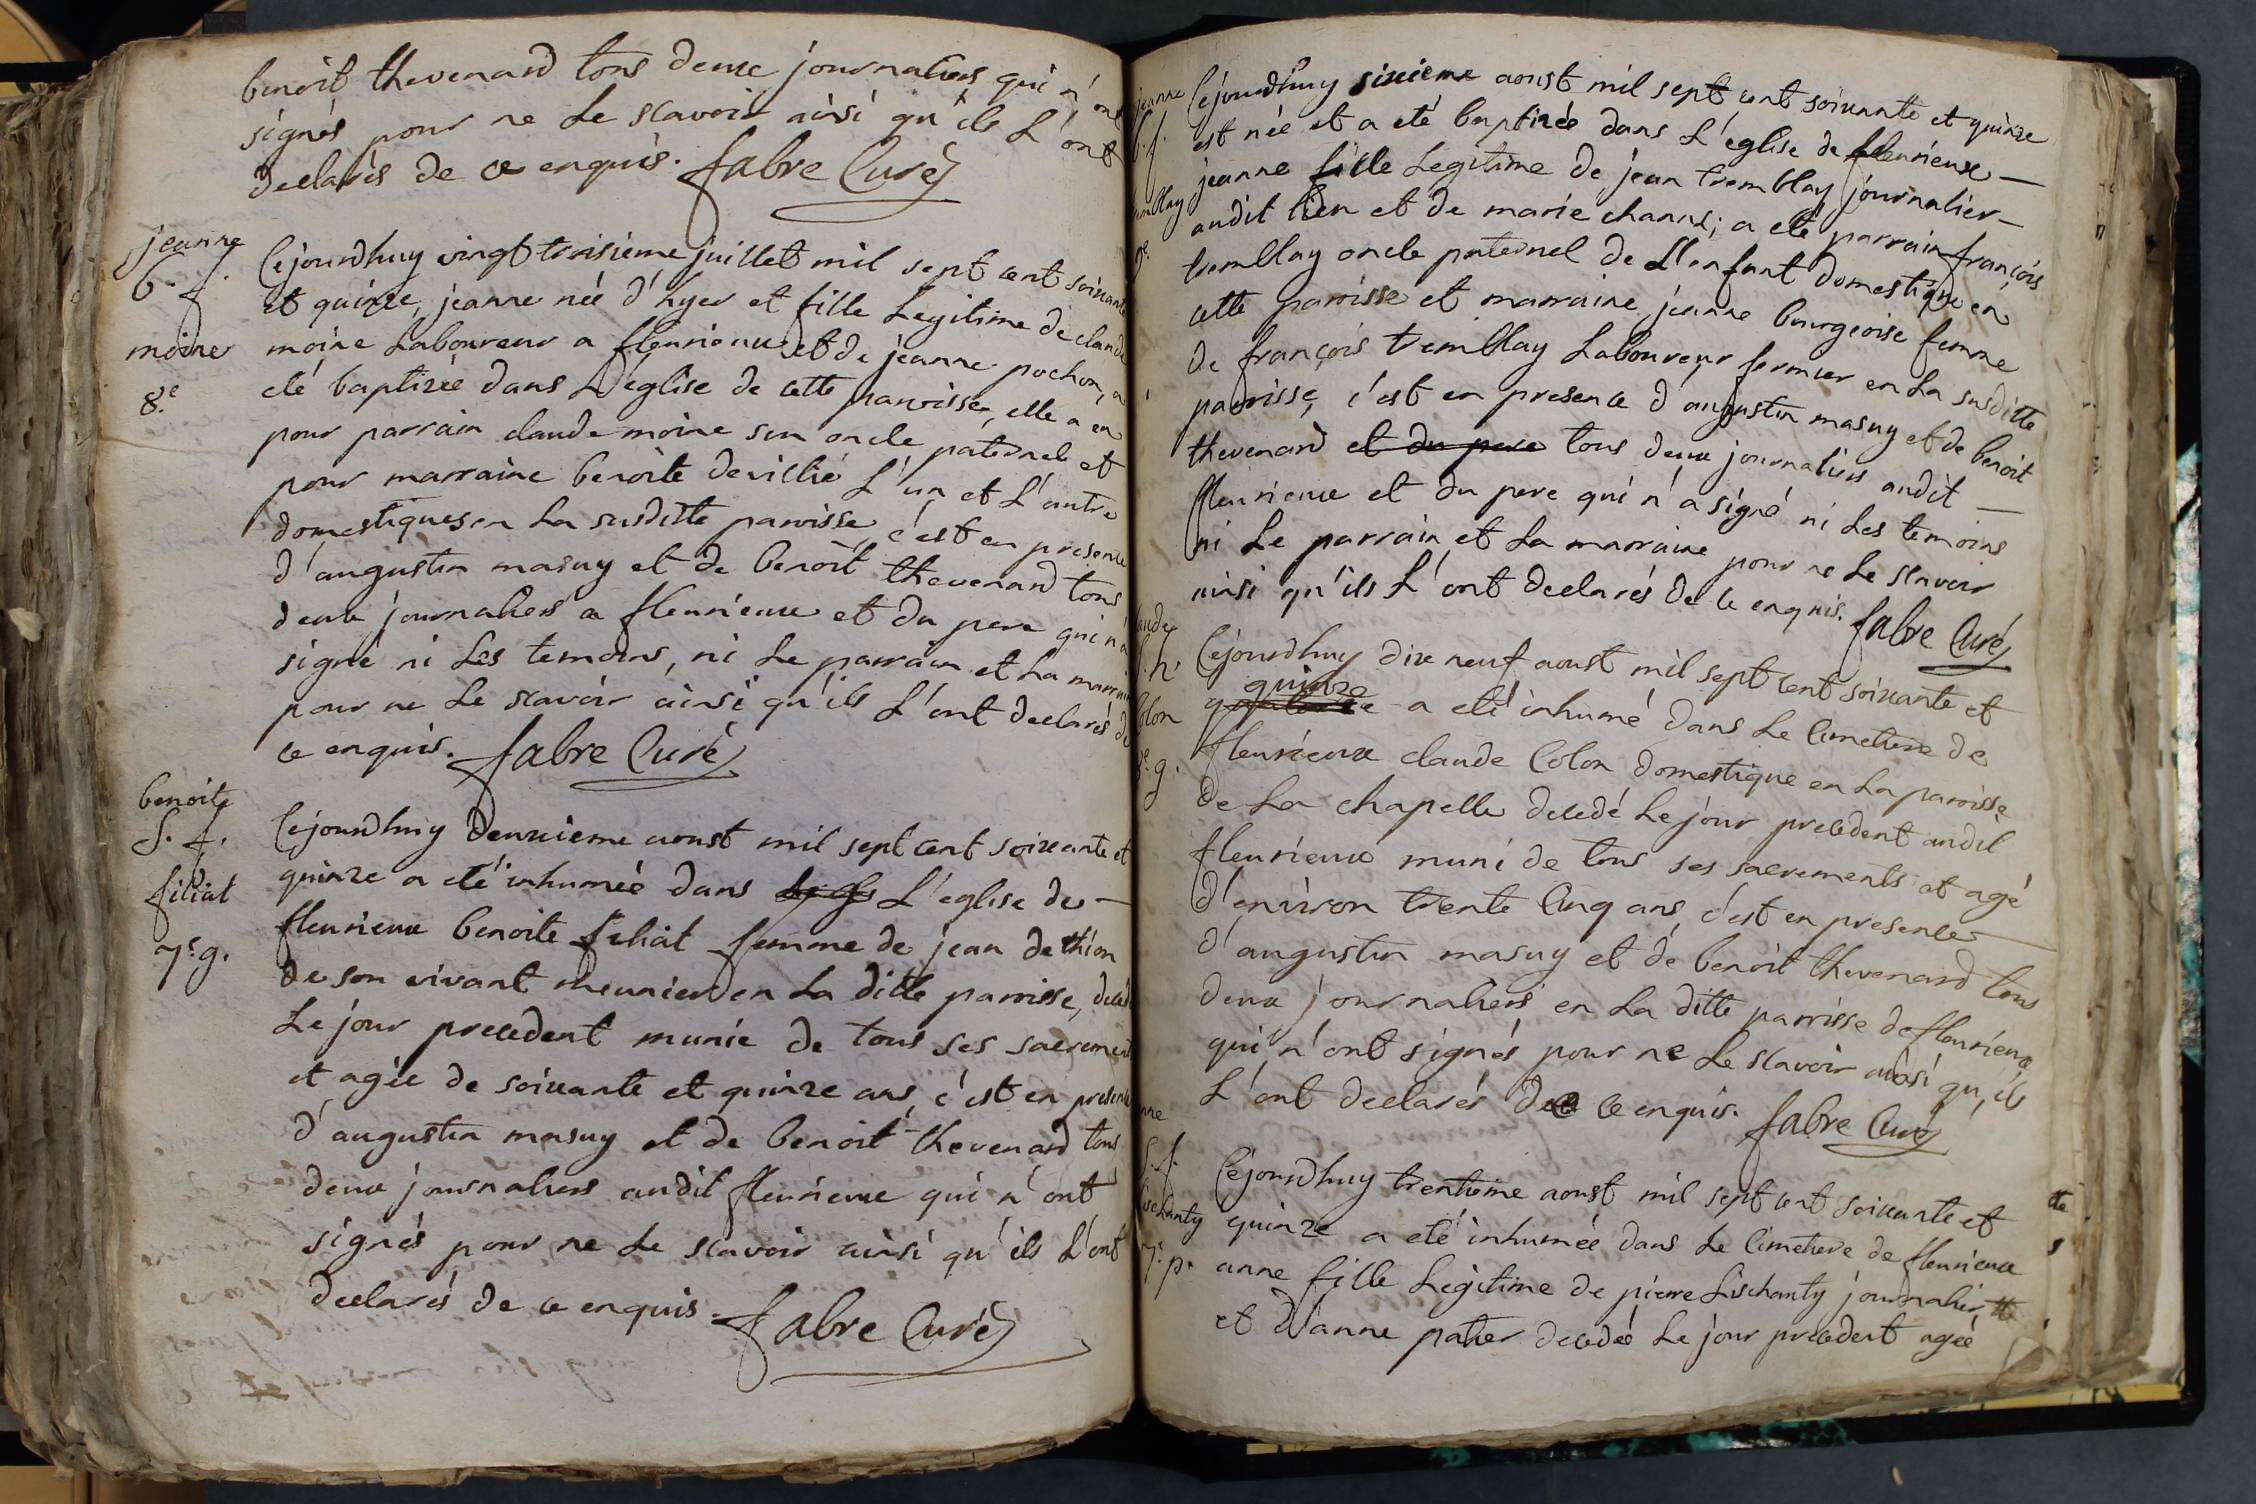 benoit thevenard tous deux journaliers qui n'ont
signés pour ne le scavoir ainsi qu'ils L'ont
declarés de ce enquis. fabre Curé
jeanne
b. f.
moine
8.e
Cejourdhuy vingt troisieme juillet mil sept cent soixante
et quinze, jeanne née d'hyer et fille Legitime de claude
moine Laboureur a fleurieux et de jeanne pochon, a
eté baptizée dans L'eglise de cette parroisse, elle a eu
pour parrain claude moine son oncle paternel et
pour marraine benoite devillié L'un et L'autre
domestiques en La susditte paroisse, c'est en presence
d'augustin masuy et de benoit thevenard tous
deux journaliers a fleurieux et du pere qui n'a
signé ni Les temoins, ni Le parrain et La marraine
pour ne Le scavoir ainsi qu'ils L'ont declarés de
ce enquis. fabre Curé
benoite
S. f.
filiat
7.e g.
Cejourdhuy deuxieme aoust mil sept cent soixante et
quinze a eté inhumée dans L'eglise de
fleurieux benoite filiat femme de jean dethion
de son vivant meunier en La ditte paroisse, decedé
Le jour precedent munie de tous ses sacrements
et agée de soixante et quinze ans, c'est en presence
d'augustin masuy et de benoit thevenard tous
deux journaliers audit fleurieux qui n'ont
signés pour ne Le scavoir ainsi qu'ils L'ont
declarés de ce enquis fabre Curé
jeanne
b. f.
emblay
9.e
Cejourdhuy sixieme aoust mil sept cent soixante et quinze
est née et a eté baptizée dans L'eglise de fleurieux
jeanne fille Legitime de jean tremblay journalier
audit lieu et de marie channe; a eté parrain françois
tremblay oncle paternel de L'enfant domestique en
cette paroisse et marraine jeanne bourgeoise femme
de françois tremblay Laboureur fermier en La susditte
paroisse, c'est en presence d'augustin masuy et de benoit
thevenard et du pere tous deux journaliers audit
fleurieux et du pere qui n'a signé ni Les temoins
ni Le parrain et La marraine pour ne Le scavoir
ainsi qu'ils L'ont declarés de ce enquis. fabre Curé
aude
h.
Colon
8.e g.
Cejourdhuy dix neuf aoust mil sept cent soixante et
quinze
quatorze a eté inhumé dans Le cimetiere de
fleurieux claude Colon domestique en La paroisse
de La chapelle decedé Le jour precedent audit
fleurieux muni de tous ses sacrements et agé
d'environ trente cinq ans, c'est en presence
d'augustin masuy et de benoit thevenard tous
deux journaliers en La ditte parrisse de fleurieux
qui n'ont signés pour ne Le scavoir ainsi qu'ils
L'ont declarés de ce enquis. fabre Curé
nne
S. f.
ischanty
7.e p.
Cejourdhuy trentieme aoust mil sept cent soixante et
quinze a eté inhumée dans Le cimetiere de fleurieux
anne fille Legitime de pierre Lischanty journalier
et d'anne patier decedée Le jour precedent agée